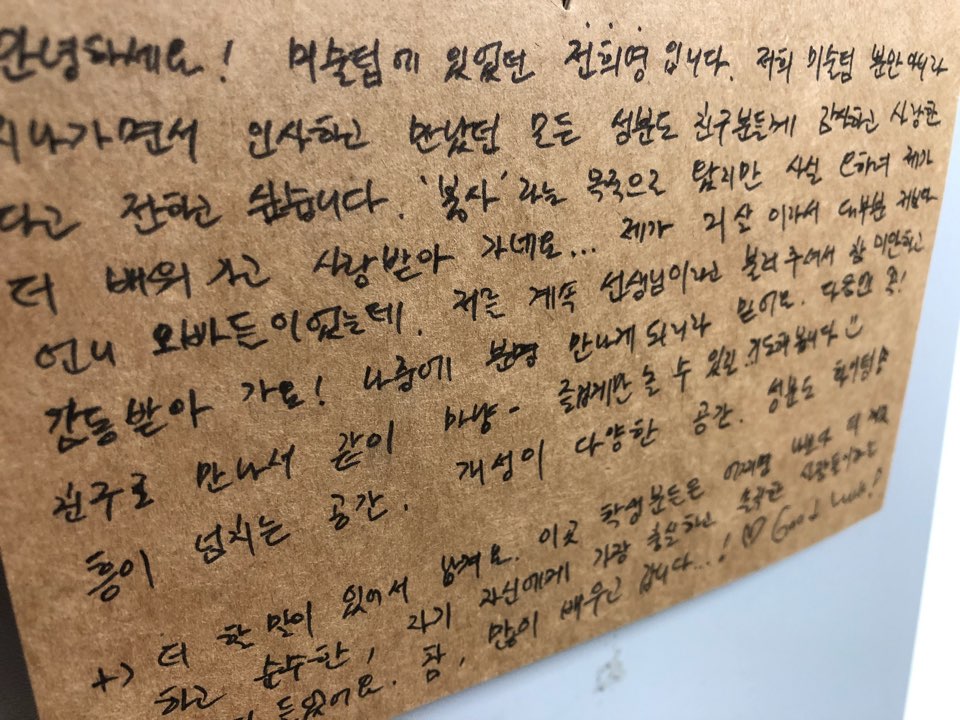 안녕하세요! 미술팀에 있었던 전희영입니다. 저희 미술팀 분만 아니라
지나가면서 인사하고 만났던 모든 성분도 친구분들께 감사하고 사랑한
다고 전하고 싶습니다. '봉사'라는 목적으로 왔지만 사실 오히려 제가
더 배워가고 사랑받아 가네요... 제가 21살이라서 대부분 저보다
언니 오빠들이었는데, 저를 계속 선생님이라고 불러주셔서 참 미안하고
감동받아 가요! 나중에 분명 만나게 되리라 믿어요. 다음엔 꼭!
친구로 만나서 같이 마냥~ 즐겁게만 놀 수 있길 기도해봅니다
흥이 넘치는 공간, 개성이 다양한 공간. 성분도 화이팅!
+) 더 할 말이 있어서 남겨요. 이곳 학생분들은 어쩌면 나보다 더
하고 순수한, 자기 자신에게 가장 충실하고 사람들이라는
들었어요. 참, 많이 배우고 갑니다...! ♡ Good luck!